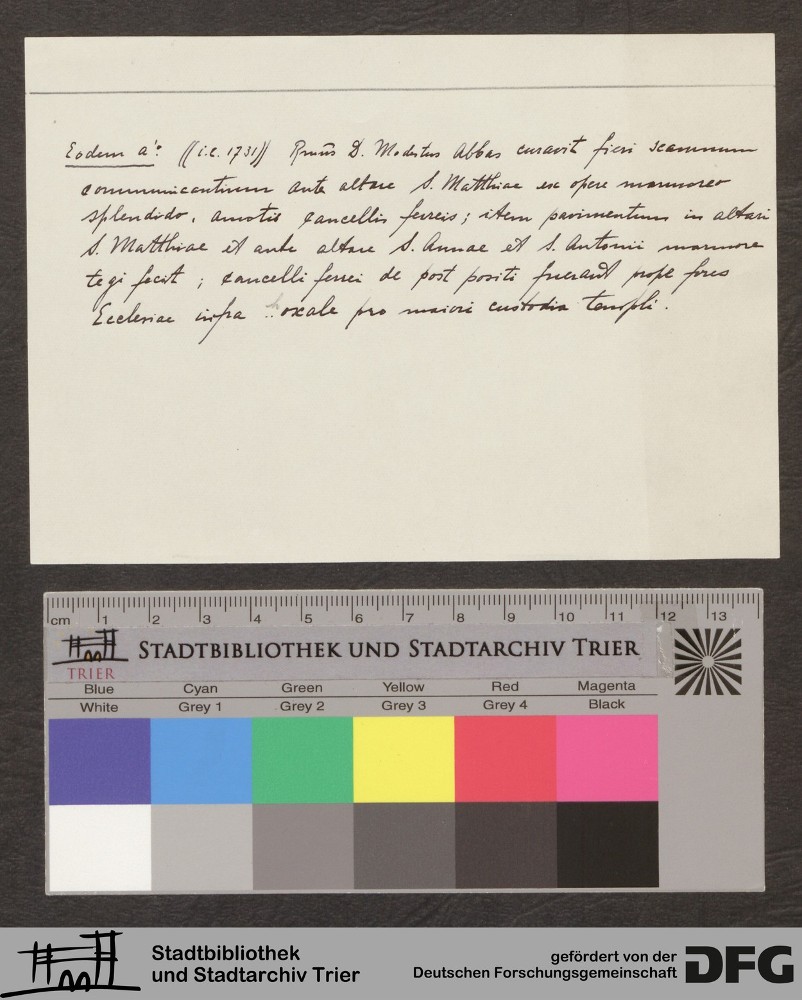 Eodem a°: ((i.e. 1731)) Rmus D. Modestus Abbas curavit fieri scamnum
communicantium ante altare S. Matthiae ex opere marmoreo
splendido, amotis cancellis ferreis; item pavimentum in altari
S. Matthiae et ante altare S. Annae et S. Antonii marmore
tegi fecit; cancelli ferrei de post positi fuerant prope fores
Ecclesiae infra oxale pro maiori custodia templi.
cm 1 2 3 4 5 6 7 8 9 10 11 12 13
STADTBIBLIOTHEK UND STADTARCHIV TRIER
TRIER
Blue Cyan Green Yellow Red Magenta
White Grey 1 Grey 2 Grey 3 Grey 4 Black
Stadtbibliothek
und Stadtarchiv Trier
gefördert von der
Deutschen Forschungsgemeinschaft
DFG